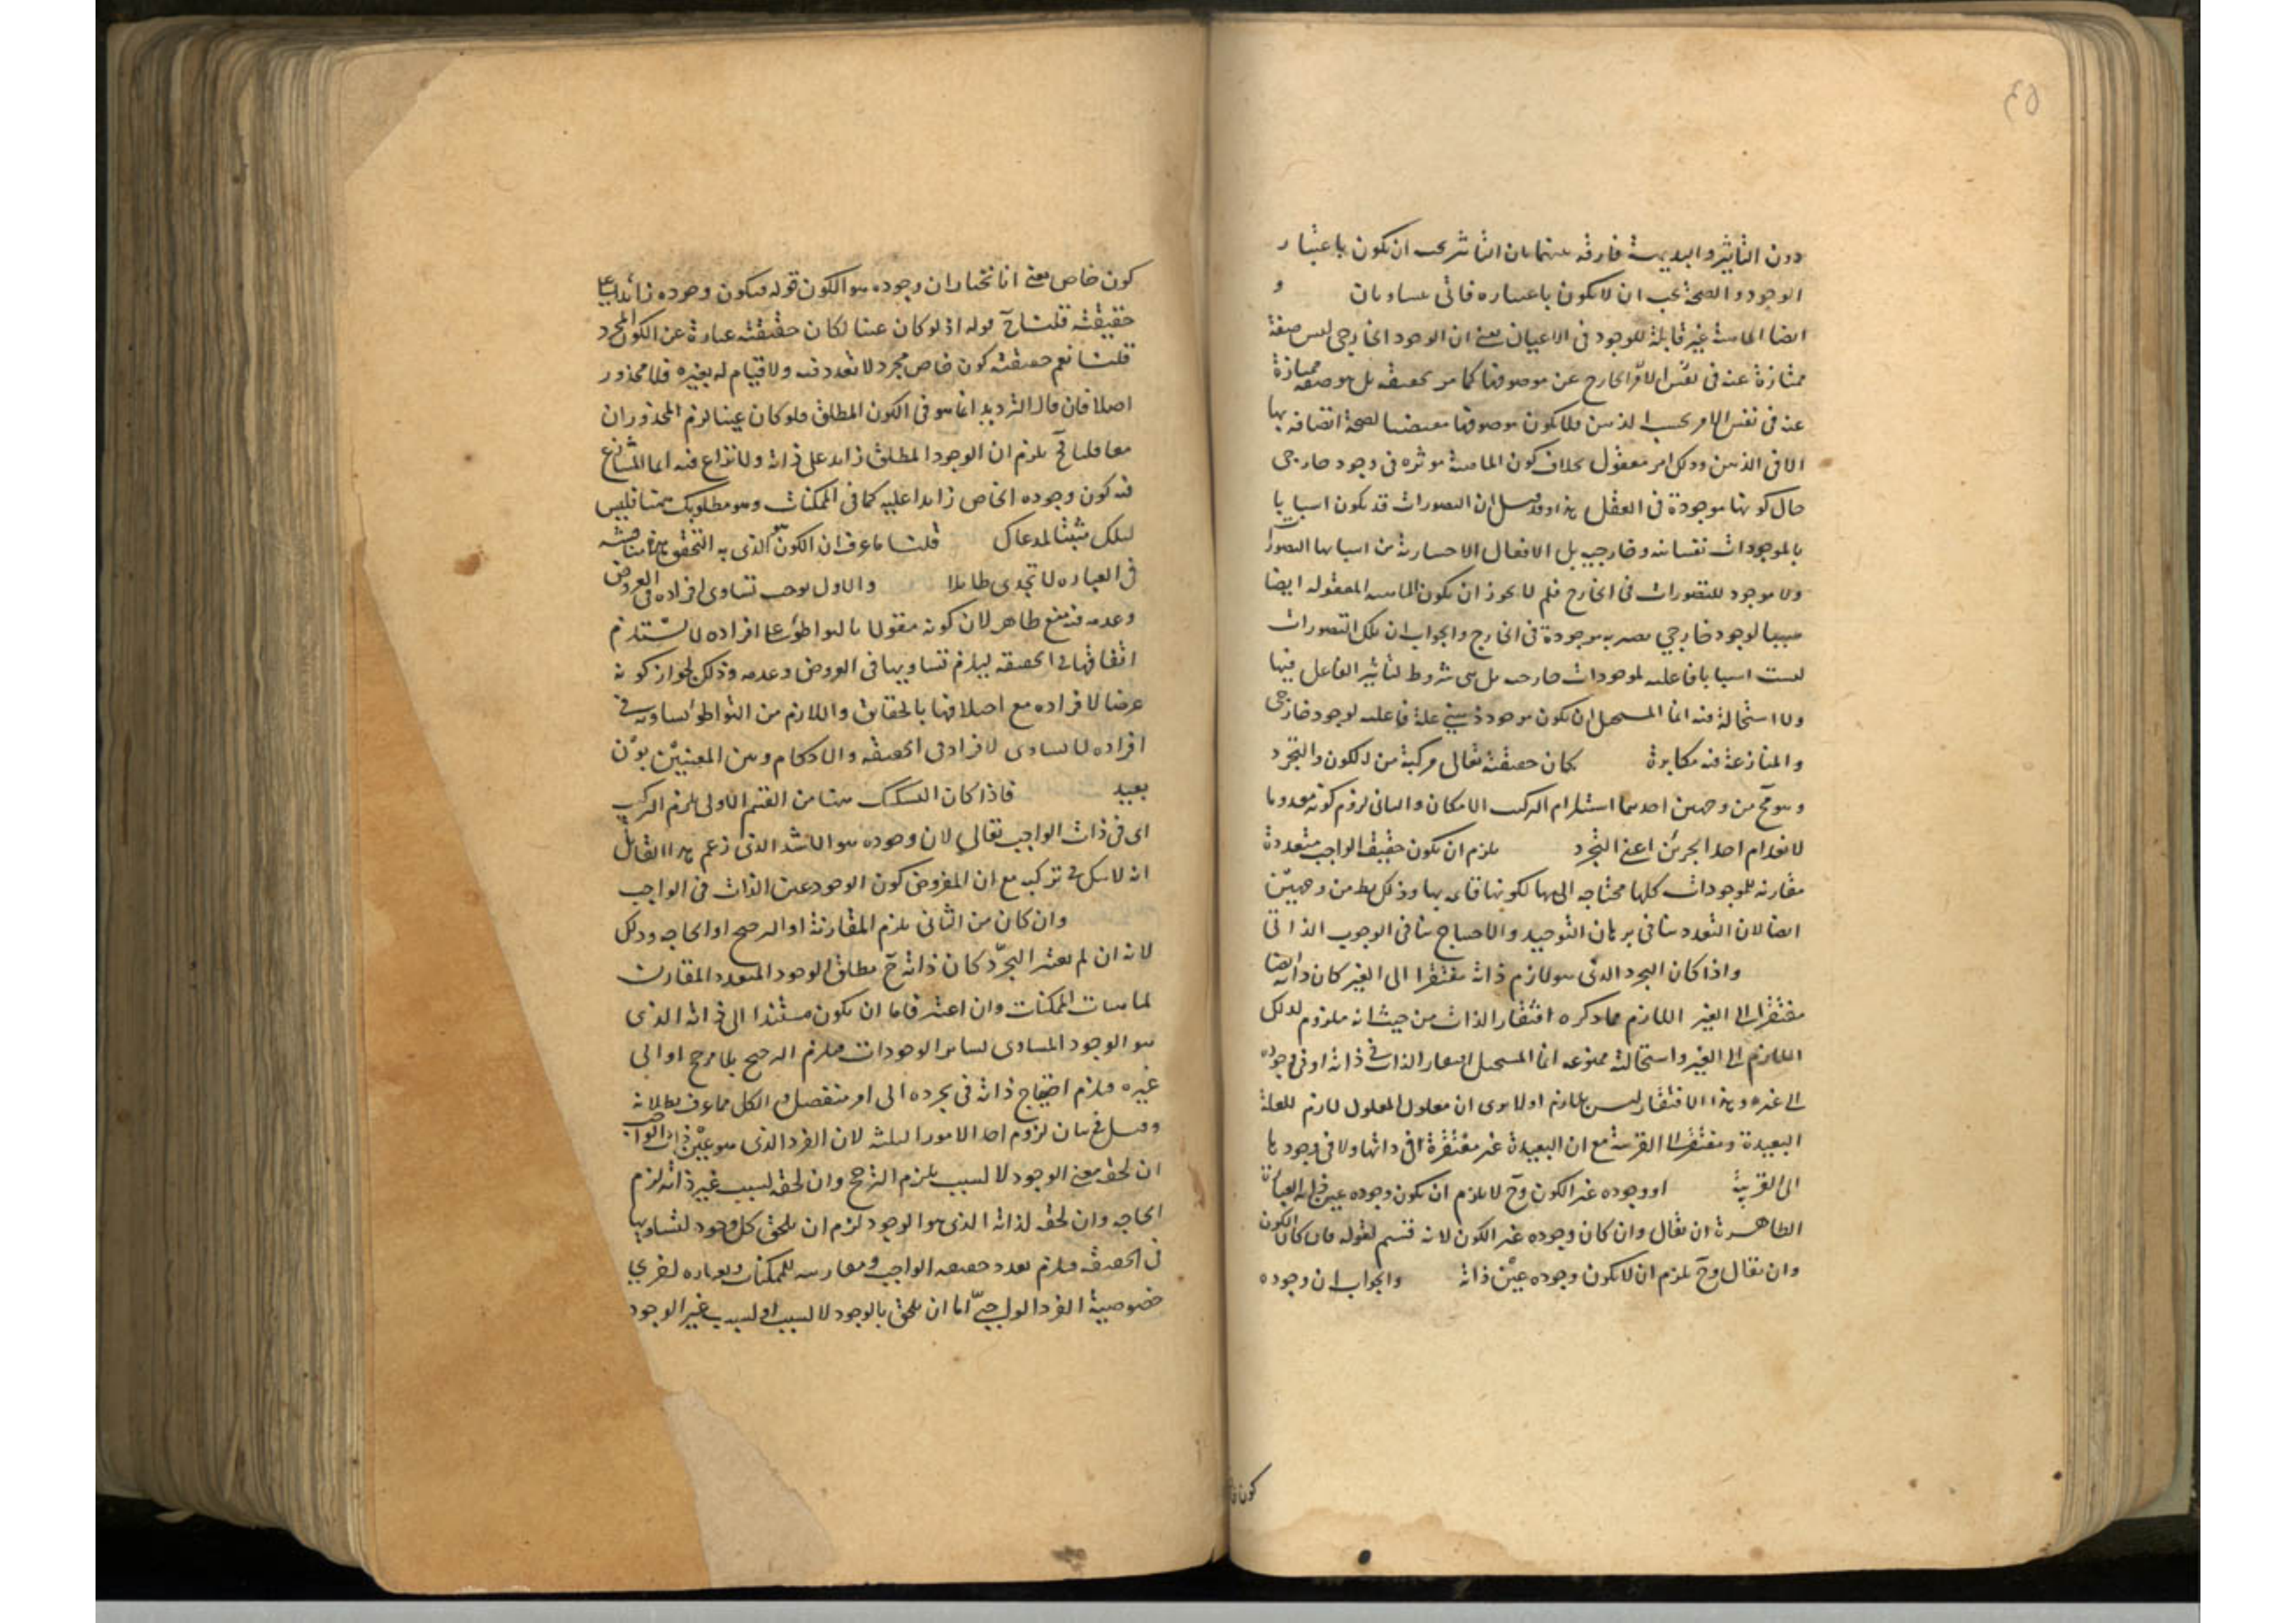 ٤٥
دون التأثير والبديهة فارقة بينهما بان التأثير يجب ان يكون باعتبار
الوجود والصحة يجب ان لا يكون باعتباره فانى يتساويان و
ايضا الماهية غير قابلة للوجود في الاعيان بمعنى ان الوجود الخارجى ليس صفة
ممتازة عنه في نفس الامر الخارج عن موصوفها كما مر تحقيقه بل هو صفة ممتازة
عنه في نفس الامر بحسب الذهن فلا يكون موصوفها مقتضيا لصحة اتصافه بها
الا في الذهن وذلك امر معقول بخلاف كون الماهية موثرة في وجود خارجى
حال كونها موجودة في العقل هذا وقد قيل ان التصورات قد يكون اسبابا
بالموجودات نفسانية وخارجية بل الافعال الاختيارية من اسبابها التصور
ولا موجود للتصورات في الخارج فلم لا يجوز ان يكون الماهية المعقولة ايضا
سببا لوجود خارجي يصير به موجودة في الخارج والجواب ان تلك التصورات
ليست اسبابا فاعلية لموجودات خارجية بل هى شروط لتأثير الفاعل فيها
ولا استحالة فيه انما المستحيل ان يكون موجود ذهنى علة فاعلية لوجود خارجى
والمنازعة فيه مكابرة كان حقيقته تعالى مركبة من الكون والتجرد
وهو مح من وجهين احدهما استلزام التركب الامكان والثانى لزوم كونه معدوما
لانعدام احد الجزئين اعنى التجرد يلزم ان يكون حقيقة الواجب متعددة
مقارنة للموجودات كلها محتاجه اليها لكونها قائمة بها وذلك بط من وجهين
ايضا لان التعدد ينافى برهان التوحيد والاحتياج ينافى الوجوب الذاتى
واذا كان التجرد الذى هو لازم ذاته مفتقرا الى الغير كان ذاته ايضا
مفتقرا الى الغير اللازم مما ذكره افتقار الذات من حيث انه ملزوم لذلك
اللازم الى الغير واستحالته ممنوعه انما المستحيل افتقار الذات في ذاته او في وجوده
الى غيره وهذا الافتقار ليس بلازم اولا يرى ان معلول المعلول لازم للعلة
البعيدة ومفتقر الى القريبة مع ان البعيدة غير مفتقرة لا في ذاتها ولا في وجودها
الى القريبة او وجوده غير الكون وح لا يلزم ان يكون وجوده عين ذاته العبارة
الظاهرة ان يقال وان كان وجوده غير الكون لانه قسم لقوله فان كان الكون
وان يقال وح يلزم ان لا يكون وجوده عين ذاته والجواب ان وجوده
كون خا
كون خاص يعنى انا نختار ان وجوده هو الكون قوله فيكون وجوده زائدا على
حقيقته قلنا مح قوله اذ لو كان عينا لكان حقيقته عبارة عن الكون المجرد
قلنا نعم حقيقته كون خاص مجرد لا تعدد فيه ولا قيام له بغيره فلا محذور
اصلا فان قال الترديد انما هو في الكون المطلق فلو كان عينا لزم المحذوران
معا قلنا ح يلزم ان الوجود المطلق زائد على ذاته ولا نزاع فيه انما المتنازع
فيه كون وجوده الخاص زائدا عليه كما في الممكنات وهو مطلوبك هنا فليس
دليلك مثبتا لمدعاك قلنا ما عرف ان الكون هو الذى به التحقق هذه مناقشة
في العبارة لا تجدى طائلا والاول يوجب تساوى افراده في العروض
وعدمه فيه منع ظاهر لان كونه مقولا بالتواطؤ على افراده لا يستلزم
اتفاقها في الحقيقة ليلزم تساويها في العروض وعدمه وذلك لجواز كونه
عرضا لافراده مع اختلافها بالحقايق واللازم من التواطؤ تساويه في
افراده لا تساوى الافراد في الحقيقة والاحكام وبين المعنيين بون
بعيد فاذا كان التشكيك هنا من القسم الاولى يلزم التركب
اى في ذات الواجب تعالى لان وجوده هو الاشد الذى زعم هذا القائل
انه لا شك في تركبه مع ان المفروض كون الوجود عين الذات في الواجب
وان كان من الثانى يلزم المقارنة او الترجح او الحاجه وذلك
لانه ان لم يعتبر التجرد كان ذاته ح مطلق الوجود المتعدد المقارن
لماهيات الممكنات وان اعتبر فاما ان يكون مستندا الى ذاته الذى
هو الوجود المساوى لسائر الوجودات فيلزم الترجح بلا مرجح او الى
غيره فيلزم احتياج ذاته في تجرده الى امر منفصل والكل مما عرف بطلانه
وقيل في بيان لزوم احد الامور الثلثة لان الفرد الذى هو عين ذات الواجب
ان لحقه معنى الوجود لا لسبب يلزم الترجح وان لحقه لسبب غير ذاته لزم
الحاجه وان لحقه لذاته الذى هو الوجود لزم ان يلحق كل وجود لتساويها
في الحقيقة فيلزم تعدد حقيقة الواجب ومقارنته للممكنات وبعبارة اخرى
خصوصية الفرد الواجبى اما ان يلحق بالوجود لا لسبب او لسبب غير الوجود